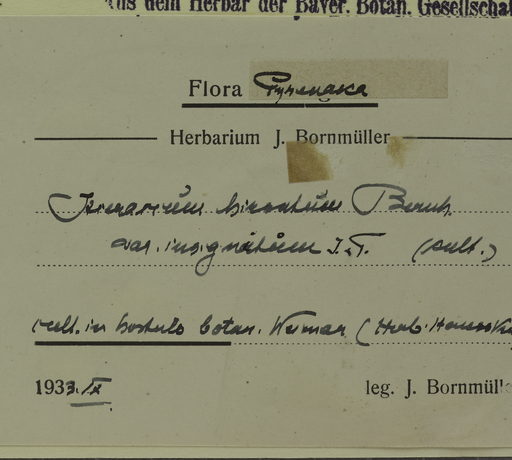 Aus dem Herbar der Bayer. Botan. Gesellschaf
Flora Pyrenaea
Herbarium J. Bornmüller
Hieracium hirsutum Bernh.
var. insignitum Z. (cult.)
cult. in hortulo botan. Weimar (Herb. Hausskn
1933. IX
leg. J. Bornmüll